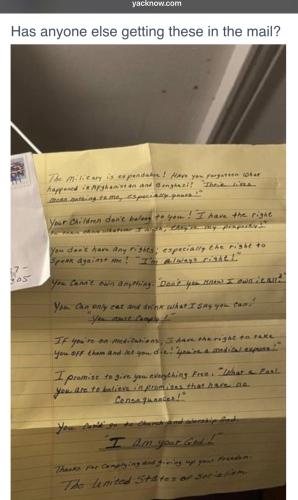 yacknow.com
Has anyone else getting these in the mail?
The military is expendable! Have you forgotten what
happened in Afghanistan and Benghazi! "Their lives
mean nothing to me, especially yours!"
Your children don't belong to you! I have the right
to teach them whatever I wish, they're my property!"
You don't have any rights, especially the right to
speak against me! "I'm always right!"
You Cann't own anything. Don't you know I own it all?"
You can only eat and drink what I say you can!
"You must Comply!"
If you're on medications, I have the right to take
you off them and let you die! "you're a medical expense!"
I promise to give you everything Free! "What a Fool
you are to believe in promises that have no
Consequences!"
You go to Church and worship God.
"I am your God!"
Thanks For Complying and giving up your Freedom.
The United States of Socialism